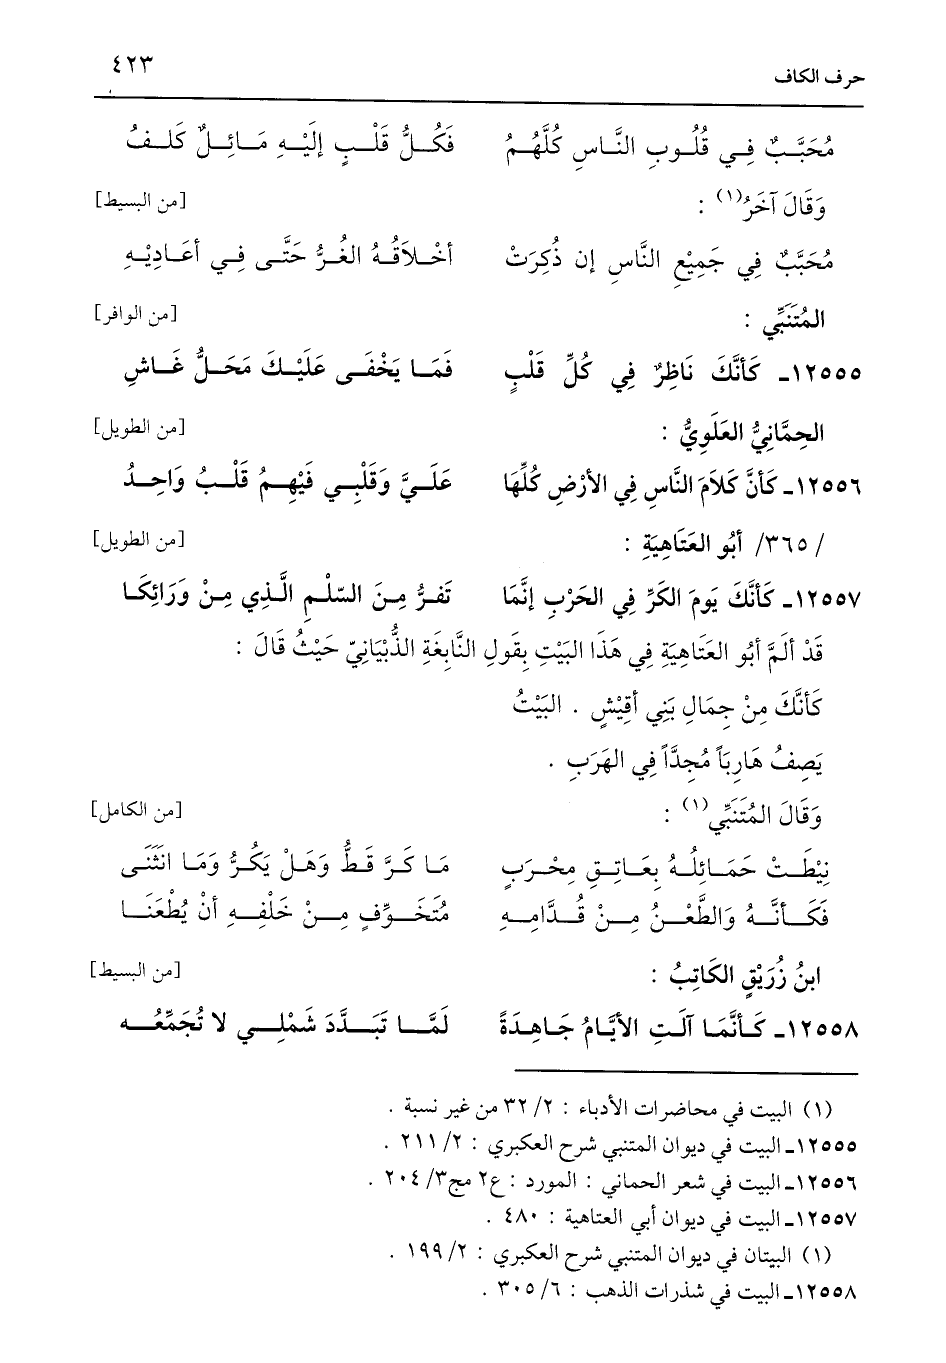 حرف الكاف ٤٢٣
مُحَبَّبٌ فِي قُلُوبِ النَّاسِ كُلَّهُمُ فَكُلُّ قَلْبٍ إِلَيْهِ مَائِلٌ كَلفُ
وَقَالَ آخَرُ(١) : [من البسيط]
مُحَبَّبٌ فِي جَمِيْعِ النَّاسِ إن ذُكِرَتْ أخْلاَقُهُ الغُرُّ حَتَّى فِي أعَادِيْهِ
المُتَنَبِّي : [من الوافر]
١٢٥٥٥ـ كَأنَّكَ نَاظِرٌ فِي كُلِّ قَلْبٍ فَمَا يَخْفَى عَلَيْكَ مَحَلُّ غَاشِ
الحِمَّانِيُّ العَلَوِيُّ : [من الطويل]
١٢٥٥٦ـ كَأنَّ كَلاَمَ النَّاسِ فِي الأرْضِ كُلِّهَا عَلَيَّ وَقَلْبِي فَيْهِمُ قَلْبُ وَاحِدُ
/ ٣٦٥/ أبُو العَتَاهِيَةِ : [من الطويل]
١٢٥٥٧ـ كَأنَّكَ يَومَ الكَرِّ فِي الحَرْبِ إنَّمَا تَفرُّ مِنَ السّلْمِ الَّذِي مِنْ وَرَائِكَا
قَدْ ألَمَّ أبُو العَتَاهِيَةِ فِي هَذَا البَيْتِ بِقَولِ النَّابِغَةِ الذُّبْيَانِيّ حَيْثُ قَالَ :
كَأنَّكَ مِنْ جِمَالِ بَنِي أقِيْشٍ . البَيْتُ
يَصِفُ هَارِبَاً مُجِدَّاً فِي الهَرَبِ .
وَقَالَ المُتَنَبِّي(١) : [من الكامل]
نِيْطَتْ حَمَائِلُهُ بِعَاتِقِ مِحْرَبٍ مَا كَرَّ قَطُّ وَهَلْ يَكُرُّ وَمَا انْثَنَى
فَكَأنَّهُ وَالطَّعْنُ مِنْ قُدَّامِهِ مُتَخَوِّفٍ مِنْ خَلْفِهِ أنْ يُطْعَنَا
ابنُ زُرَيْقٍ الكَاتِبُ : [من البسيط]
١٢٥٥٨ـ كَأنَّمَا آلَتِ الأيَّامُ جَاهِدَةً لَمَّا تَبَدَّدَ شَمْلِي لا تُجَمِّعُه
(١) البيت في محاضرات الأدباء : ٢/ ٣٢ من غير نسبة .
١٢٥٥٥ـ البيت في ديوان المتنبي شرح العكبري : ٢/ ٢١١ .
١٢٥٥٦ـ البيت في شعر الحماني : المورد : ع٢ مج٣/ ٢٠٤ .
١٢٥٥٧ـ البيت في ديوان أبي العتاهية : ٤٨٠ .
(١) البيتان في ديوان المتنبي شرح العكبري : ٢/ ١٩٩ .
١٢٥٥٨ـ البيت في شذرات الذهب : ٦/ ٣٠٥ .